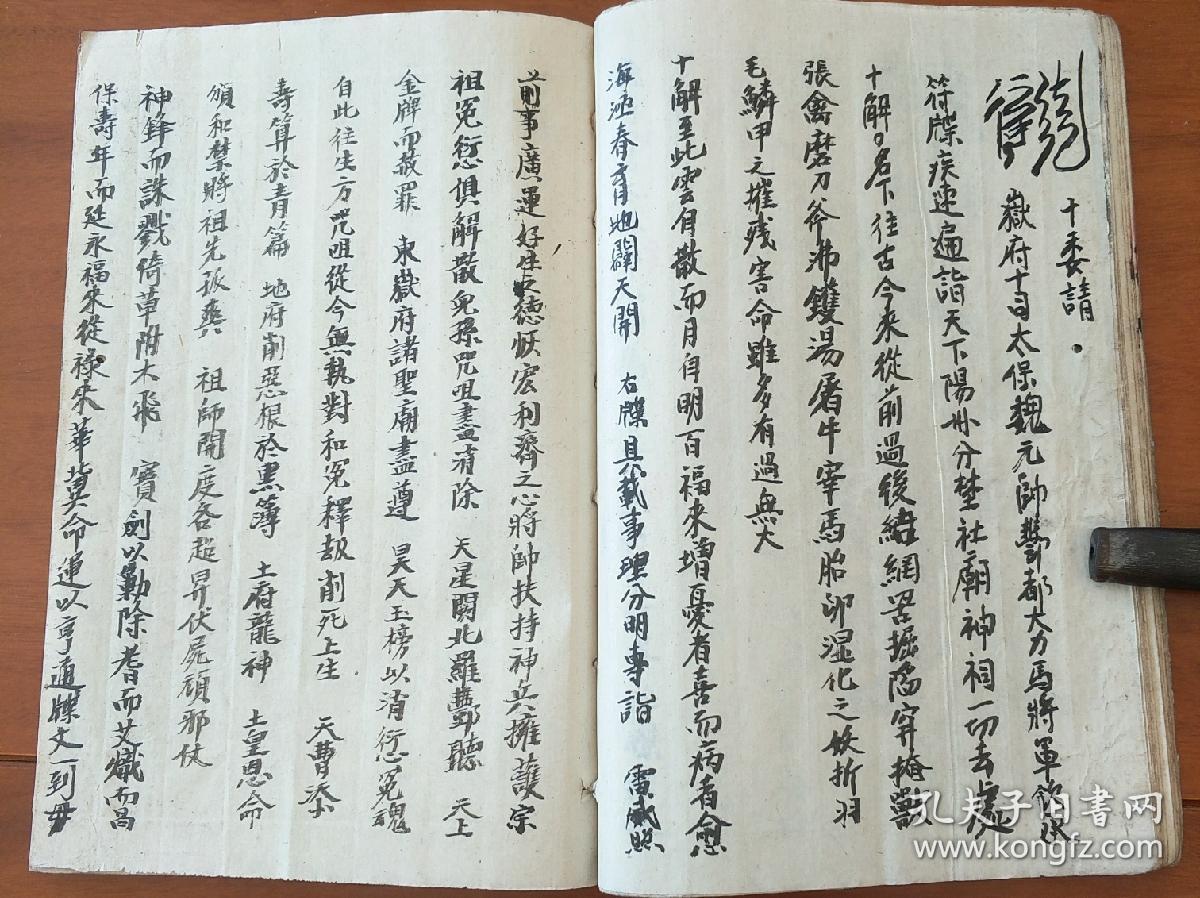 十委請
嶽府十司太保魏元帥酆都大力馬將軍
符牒疾速遍詣天下陽州分埜社廟神祠一切去處
十解名下往古今來從前過後緝網罟掘陷穽掩獸
張禽磨刀斧沸鑊湯屠牛宰馬胎卵濕化之妖折羽
毛鱗甲之摧殘害命雖多有過無大
十解至此雲自散而月自明百福來增憂者喜而病者愈
海涵春育地闢天開 右牒具載事理分明專詣 雷威照
前事廣運好生之德恢宏利濟之心將帥扶持神兵擁護宗
祖冤愆俱解散兒孫咒咀盡消除 天星關北羅酆聽 天上
金牌而赦罪 東嶽府諸聖廟盡遵 昊天玉榜以消愆冤魂
自此往生方咒咀從今無執對和冤釋報削死上生 天曹添
壽算於青篇 地府削惡根於黑簿 土府龍神 土皇恩命
頒和禁將祖先孤爽 祖師開度各超昇伏屍頑邪仗
神鋒而誅戮倚草附木飛 寶劍以勦除耆而艾熾而昌
保壽年而延永福來從祿來華冀命運以亨通牒文一到毋
孔夫子旧書网
www.kongfz.com